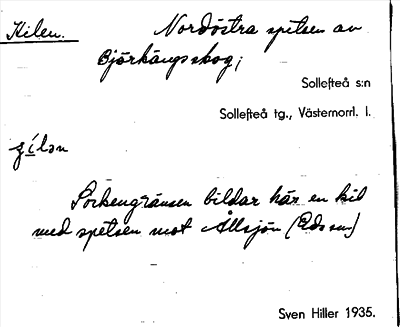 Kilen. Nordöstra spetsen av
Björkängsskog;
Sollefteå s:n
Sollefteå tg., Västernorrl. l.
ʒílən
Sockengränsen bildar här en kil
med spetsen mot Ållsjön (Eds sn)
Sven Hiller 1935.